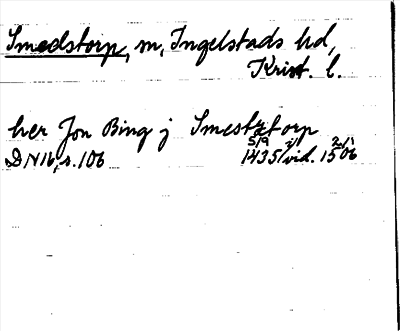 Smedstorp, m, Ingelstads hd,
Krist. l.
her Jon Bing j Smestztorp
DN16, s. 106 5/9 1435 i vid. 2/1 1506